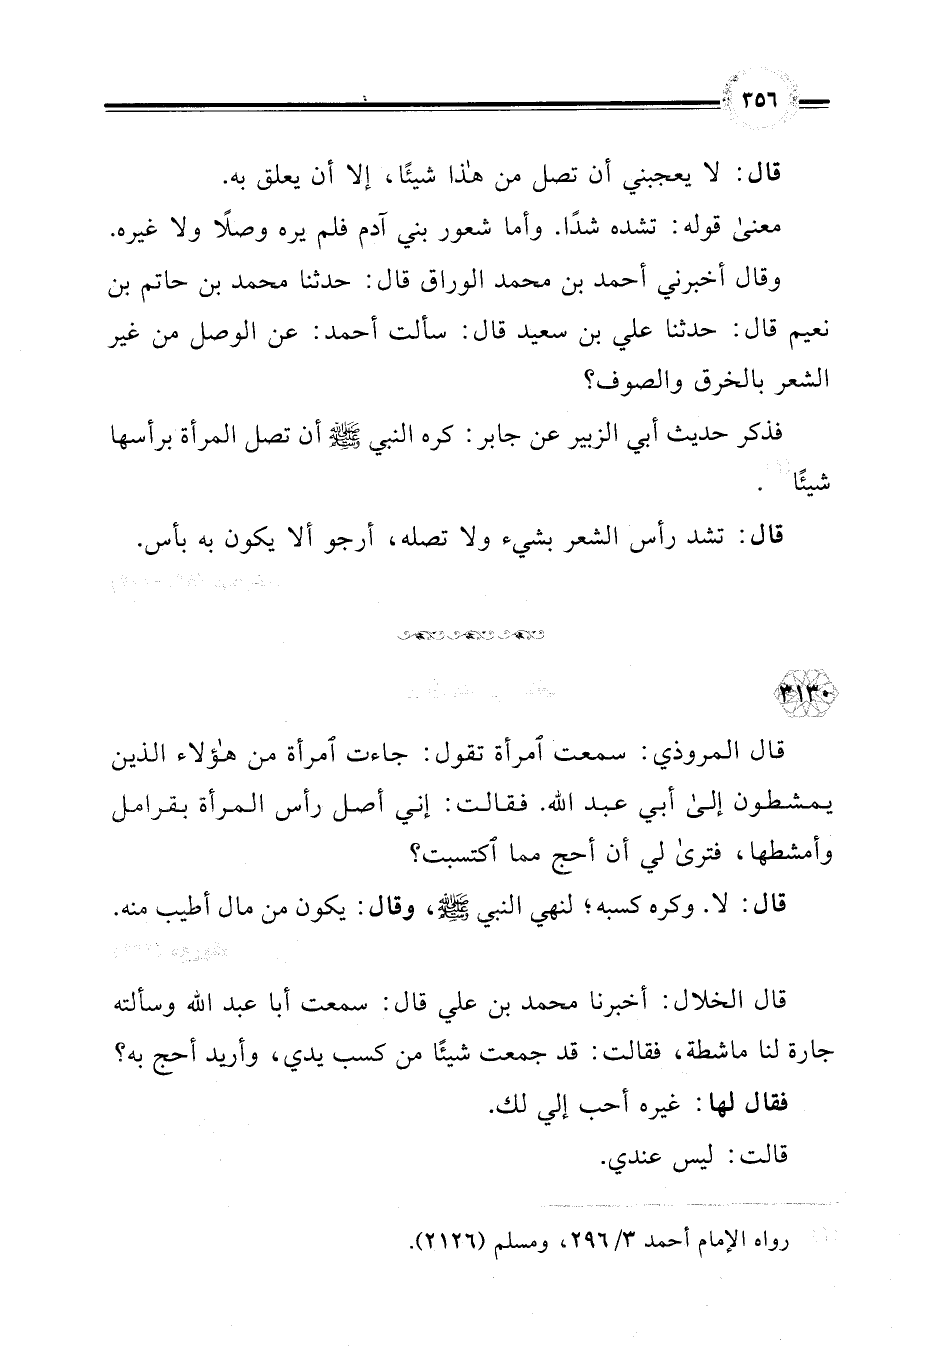 ٣٥٦
قال: لا يعجبني أن تصل من هذا شيئًا، إلا أن يعلق به.
معنىٰ قوله: تشده شدًا. وأما شعور بني آدم فلم يره وصلًا ولا غيره.
وقال أخبرني أحمد بن محمد الوراق قال: حدثنا محمد بن حاتم بن
نعيم قال: حدثنا علي بن سعيد قال: سألت أحمد: عن الوصل من غير
الشعر بالخرق والصوف؟
فذكر حديث أبي الزبير عن جابر: كره النبي ﷺ أن تصل المرأة برأسها
شيئًا .
قال: تشد رأس الشعر بشيء ولا تصله، أرجو ألا يكون به بأس.
٣١٣٠
قال المروذي: سمعت ٱمرأة تقول: جاءت ٱمرأة من هٰؤلاء الذين
يمشطون إلىٰ أبي عبد الله. فقالت: إني أصل رأس المرأة بقرامل
وأمشطها، فترىٰ لي أن أحج مما ٱكتسبت؟
قال: لا. وكره كسبه؛ لنهي النبي ﷺ، وقال: يكون من مال أطيب منه.
قال الخلال: أخبرنا محمد بن علي قال: سمعت أبا عبد الله وسألته
جارة لنا ماشطة، فقالت: قد جمعت شيئًا من كسب يدي، وأريد أحج به؟
فقال لها: غيره أحب إلي لك.
قالت: ليس عندي.
رواه الإمام أحمد ٣/ ٢٩٦، ومسلم (٢١٢٦).